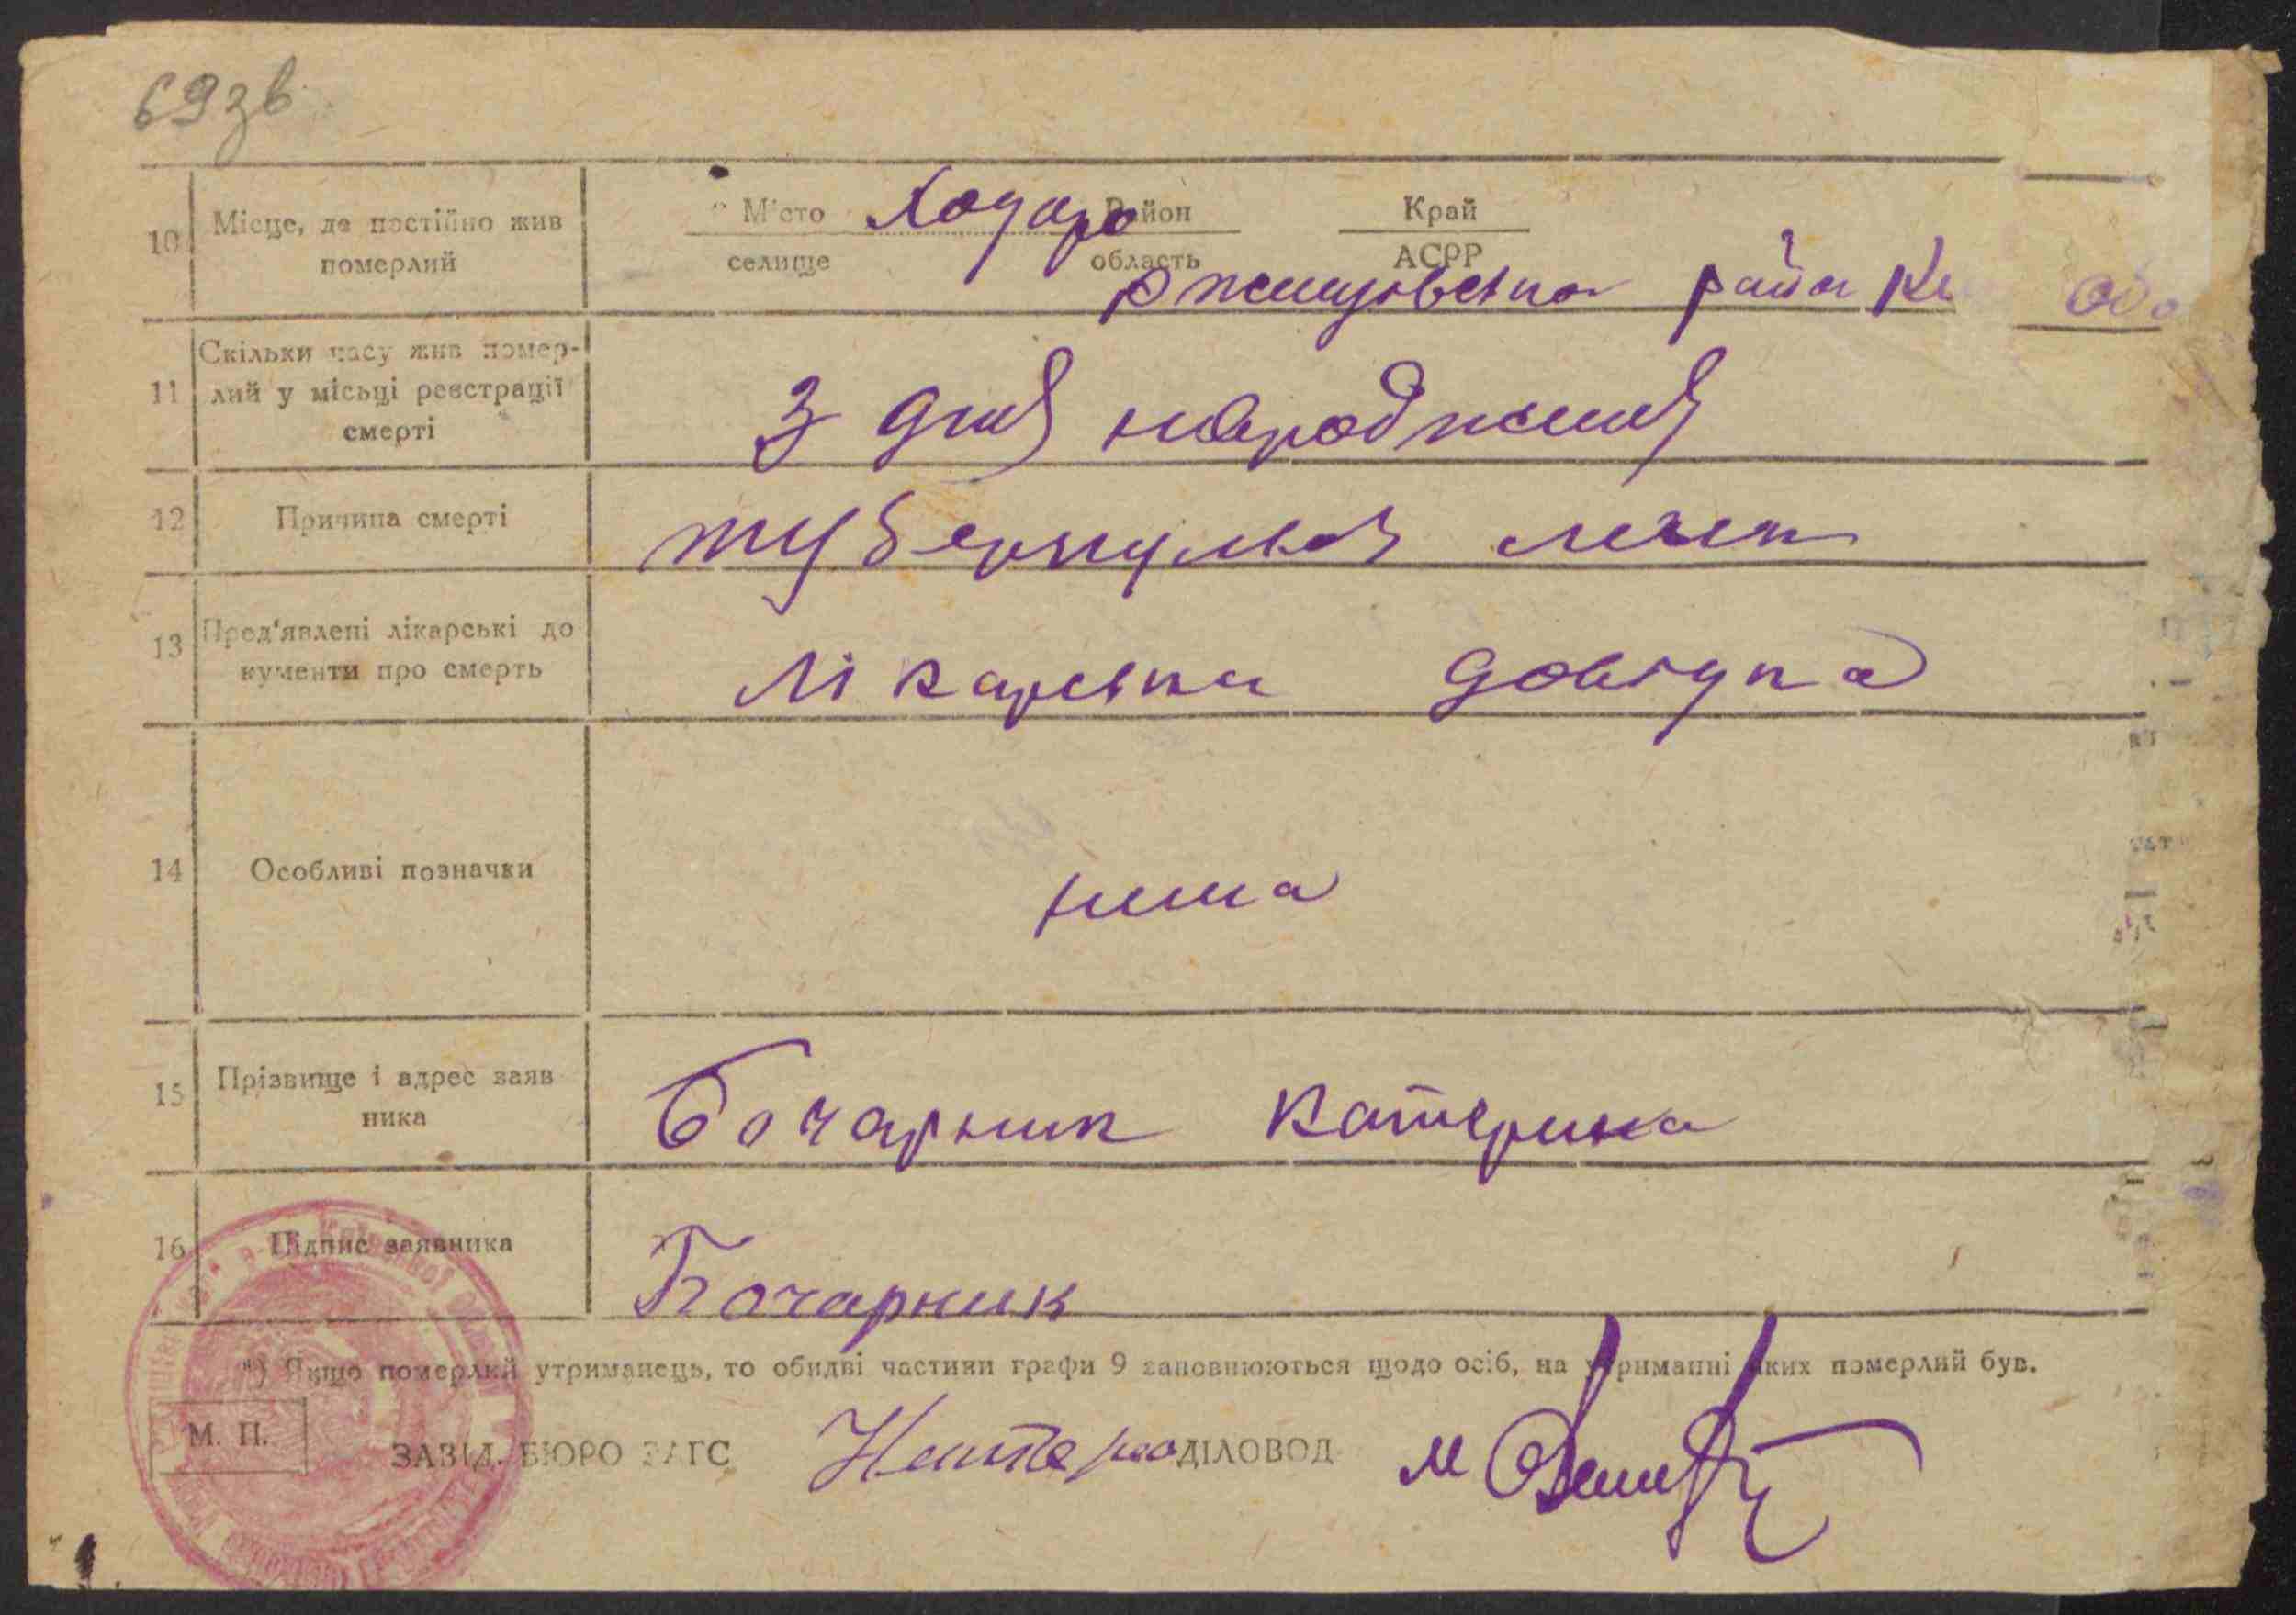 69зв
10 Місце, де постійно жив померлий
Місто Ходоро Район Край
селище область АСРР
Ржищівська район Ки обл
11 Скільки часу жив помер-
лий у місьці реєстрації
смерті
З дня народження
12 Причина смерті туберкульоз леген
13 Пред'явлені лікарські до
кументи про смерть
Лікарська довідка
14 Особливі позначки нема
15 Прізвище і адрес заяв
ника
Бочарник Катерина
16 Підпис заявника Бочарник
*) Якщо померлий утриманець, то обидві частини графи 9 заповнюються щодо осіб, на утриманні яких померлий був.
М. П. ЗАВІД. БЮРО ЗАГС ДІЛОВОД